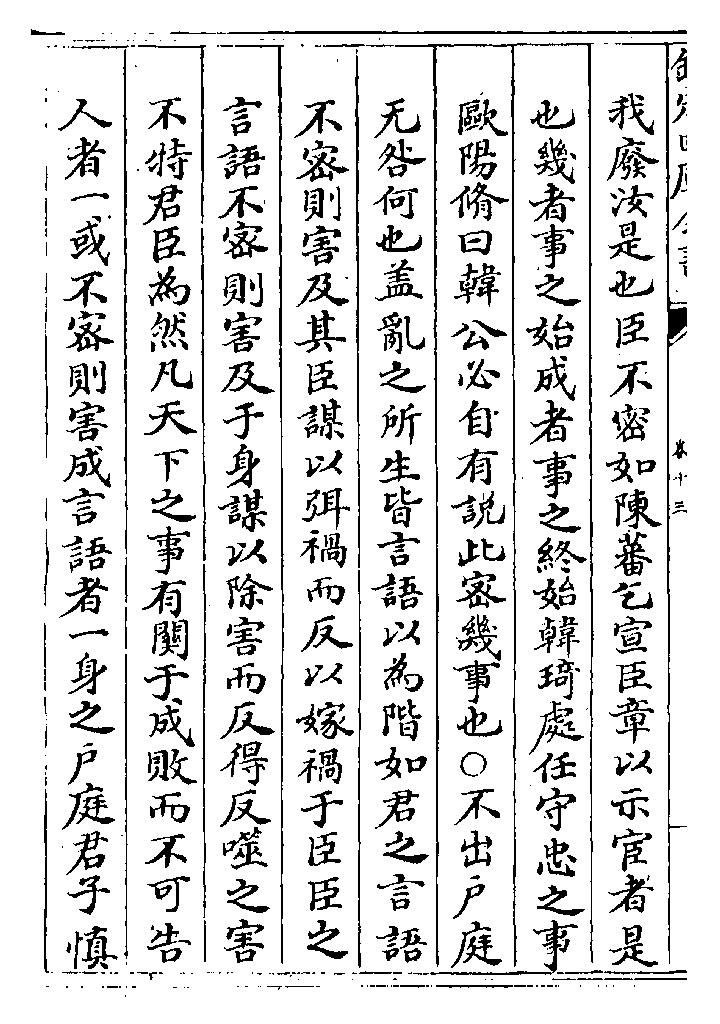 我廢汝是也臣不密如陳蕃乞宣臣章以示宦者是
也幾者事之始成者事之終始韓琦處任守忠之事
歐陽脩曰韓公必自有説此宻幾事也○不出户庭
无咎何也盖亂之所生皆言語以為階如君之言語
不宻則害及其臣謀以弭禍而反以嫁禍于臣臣之
言語不宻則害及于身謀以除害而反得反噬之害
不特君臣為然凡天下之事有關于成敗而不可告
人者一或不宻則害成言語者一身之户庭君子慎
卷十三